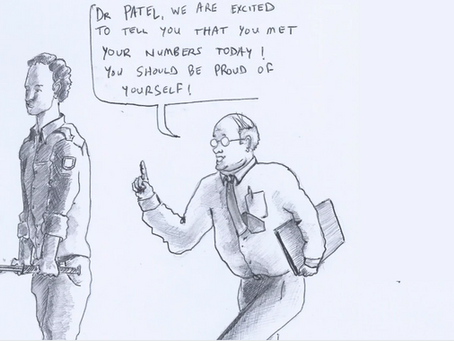 DR PATEL, WE ARE EXCITED
TO TELL YOU THAT YOU MET
YOUR NUMBERS TODAY!
YOU SHOULD BE PROUD OF
YOURSELF!